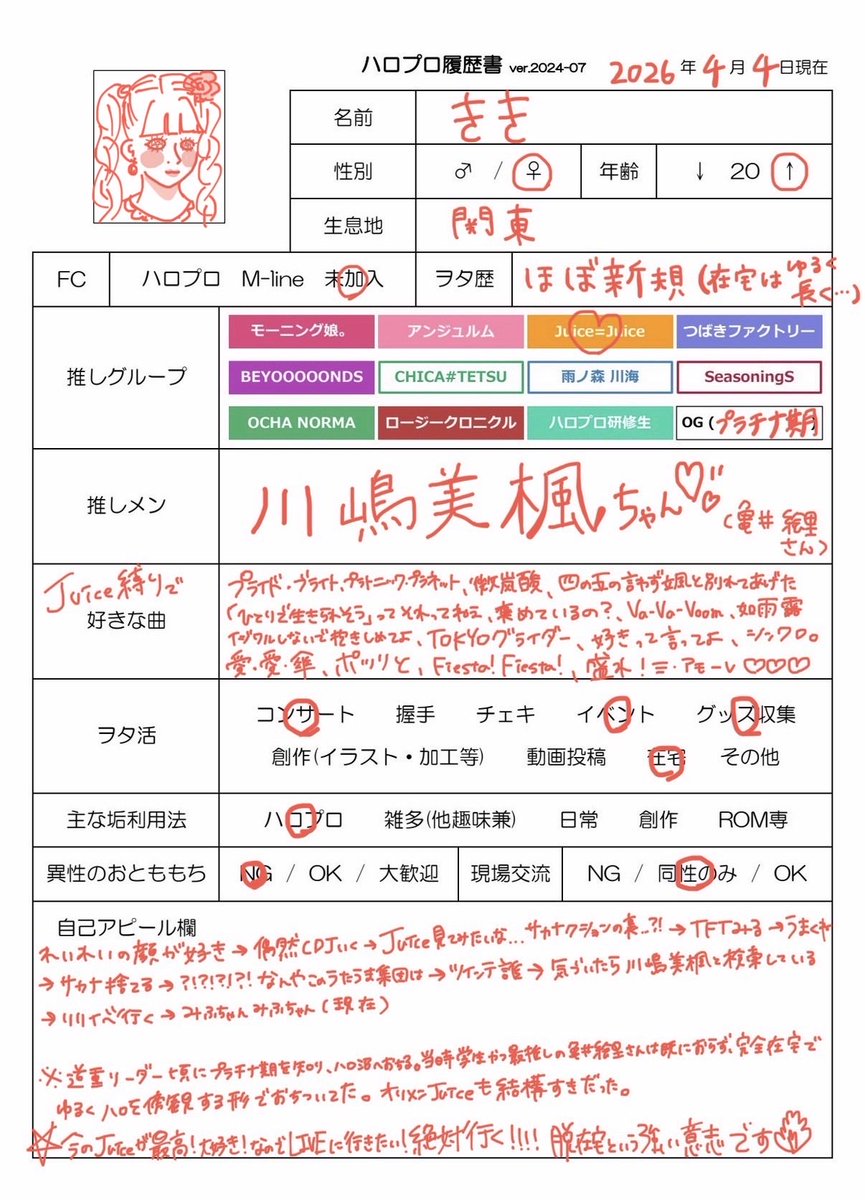 ハロプロ履歴書 ver.2024-07 2026年4月4日現在
名前 きき
性別 ♂ / ♀ 年齢 ↓ 20 ↑
生息地 関東
FC ハロプロ M-line 未加入 ヲタ歴 ほぼ新規(在宅はゆるく長く…)
推しグループ
モーニング娘。 アンジュルム Juice=Juice つばきファクトリー
BEYOOOOONDS CHICA#TETSU 雨ノ森 川海 SeasoningS
OCHA NORMA ロージークロニクル ハロプロ研修生 OG (プラチナ期)
推しメン 川嶋美楓ちゃん♡♡ (亀井絵里さん)
Juice縛りで
好きな曲
プライド・ブライト、プラトニック・プラネット、微炭酸、四の五の言わず颯と別れてあげた
「ひとりで生きられそう」ってそれってねぇ、褒めているの?、Va-Va-Voom、如雨露
イジワルしないで抱きしめてよ、TOKYOグライダー、好きって言ってよ、シンクロ。
愛・愛・傘、ポツリと、Fiesta! Fiesta!、盛れ!ミ・アモーレ♡♡♡
ヲタ活
コンサート 握手 チェキ イベント グッズ収集
創作(イラスト・加工等) 動画投稿 在宅 その他
主な垢利用法 ハロプロ 雑多(他趣味兼) 日常 創作 ROM専
異性のおとももち NG / OK / 大歓迎 現場交流 NG / 同性のみ / OK
自己アピール欄
れいれいの顔が好き→偶然CDJいく→Juice見てみたいな…サカナクションの裏…?!→TFTみる→うますぎ
→サカナ捨てる→?!?!?!?!なんやこのうたうま集団は→ツインテ誰→気づいたら川嶋美楓と検索している
→リリイベ行く→みふちゃんみふちゃん(現在)
※道重リーダー頃にプラチナ期を知り、ハロ沼へおちる。当時学生かつ最推しの亀井絵里さんは既におらず、完全在宅で
ゆるくハロを傍観する形でおちついてた。オリメンJuiceも結構すきだった。
☆今のJuiceが最高!大好き!なのでLIVEに行きたい!絶対行く!!!! 脱在宅という強い意志です